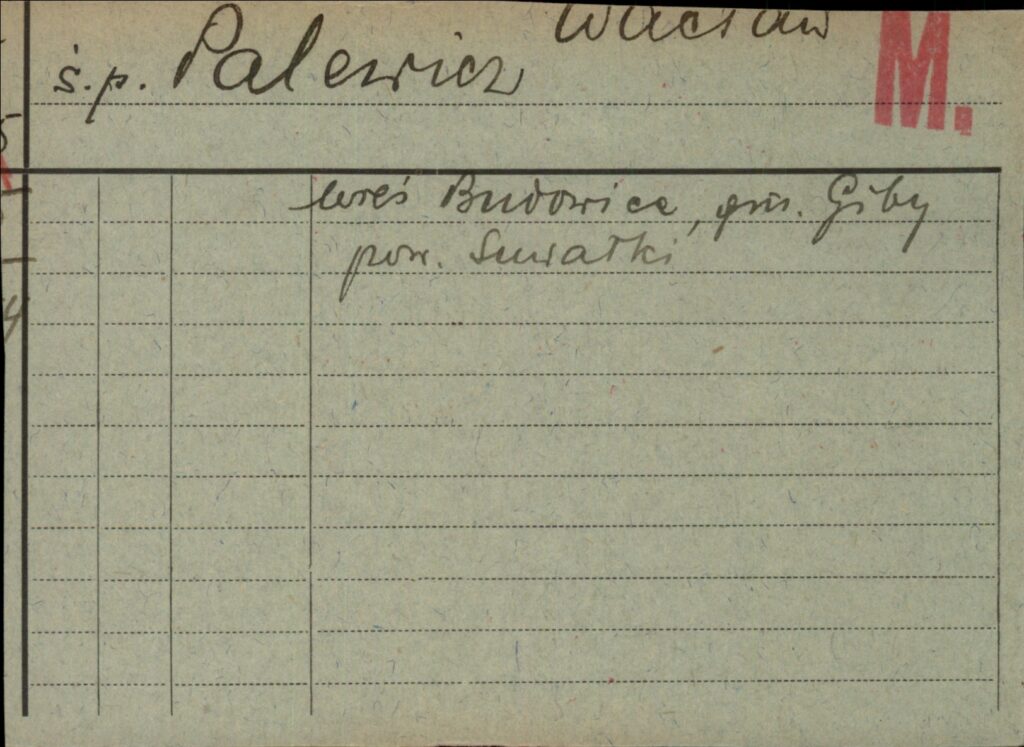 Wacław
ś.p. Palewicz
M.
wieś Budowice, gm. Giby
pow. Suwałki